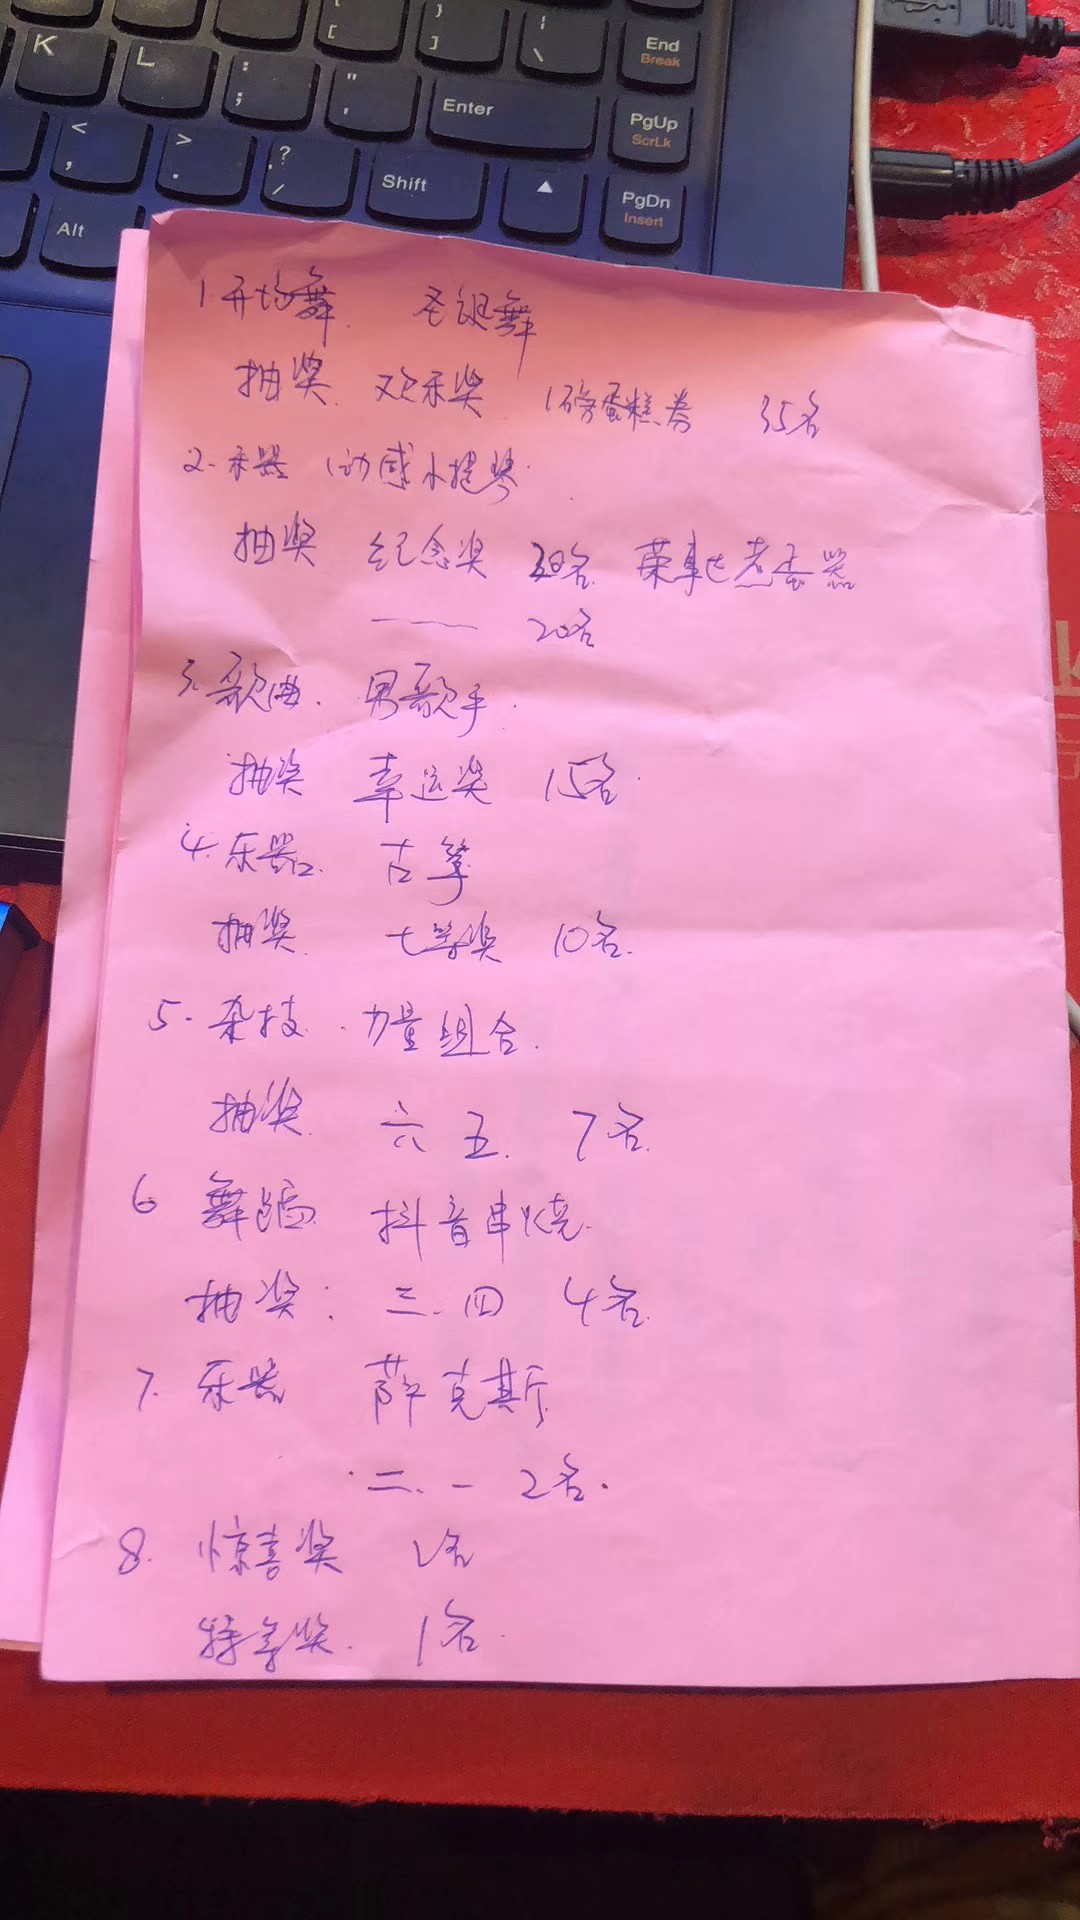 K
L
: ;
" '
[
] }
| \
End
Break
Enter
PgUp
ScrLk
< ,
> .
? /
Shift
▲
PgDn
Insert
Alt
1 开场舞 圣诞舞
抽奖 欢乐奖 1磅蛋糕券 35名
2. 乐器 动感小提琴
抽奖 纪念奖 30名 荣事达煮蛋器
—— 20名
3. 歌曲. 男歌手.
抽奖 幸运奖 15名
4. 乐器. 古筝
抽奖 七等奖 10名.
5. 杂技. 力量组合.
抽奖 六 五. 7名.
6 舞蹈 抖音串烧.
抽奖: 三.四 4名.
7. 乐器 萨克斯
二.一 2名.
8. 惊喜奖 名
特等奖. 1名.